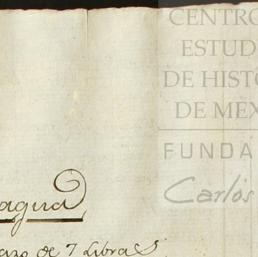 CENTRO
ESTUD
DE HISTO
DE MÉX
FUNDA
Carlos
agua
azo de 7 Libras